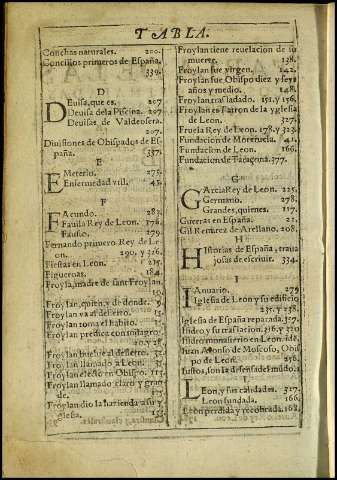 TABLA.
Conchas naturales. 200.
Concilios primeros de España.
339.
D
DEuisa, que es. 207
Deuisa de la Piscina. 207
Deuisas de Valdeosera.
207.
Diuisiones de Obispados de Es-
paña. 337.
E
EMeterio. 275.
Enfermedad vtil. 45.
F
FAcundo. 283.
Fauila Rey de Leon. 178.
Fausto. 279.
Fernando primero Rey de Le-
on. 290, y 326.
Fiestas en Leon. 215.
Figueroas. 184.
Froyla, madre de sant Froylan
10.
Froylan, quien, y de donde. 9.
Froylan va al desierto. 13.
Froylan toma el habito. 15.
Froylan predica con milagro.
20. y 28.
Froylan buelue al desierto. 32.
Froylan llamado a Leon.
Froylan electo en Obispo. 113.
Froylan llamado claro y gran-
de.
Froylan dio la hazienda a su y
glesia. 155.
Froylan tiene reuelacion de su
muerte. 128.
Froylan fue virgen. 142.
Froylan fue Obispo diez y seys
años y medio. 148.
Froylan trasladado. 151. y 156.
Froylan es Patron de la yglesia
de Leon. 327.
Fruela Rey de Leon. 178. y 323.
Fundacion de Moreruela. 41.
Fundacion de Leon. 166.
Fundacion de Tarragona. 377.
G
GArcia Rey de Leon. 225.
Germano. 278.
Grandes, quienes. 117.
Guerras en España. 21.
Gil Remirez de Arellano. 208.
H
HIstorias de España, traua
josas de escriuir. 334.
I
IAnuario. 279
Iglesia de Leon y su edificio
235. y 238.
Iglesia de España reparada. 329.
Isidro y su traslacion. 316. y 320
Isidro monasterio en Leon. ide.
Iuan Alonso de Moscoso, Obis
po de Leon. 256.
Iustos, son la defensa del mūdo. 1.
L
LEon, y sus calidades. 327.
Leon fundada. 166.
Leon perdida y recobrada. 168.